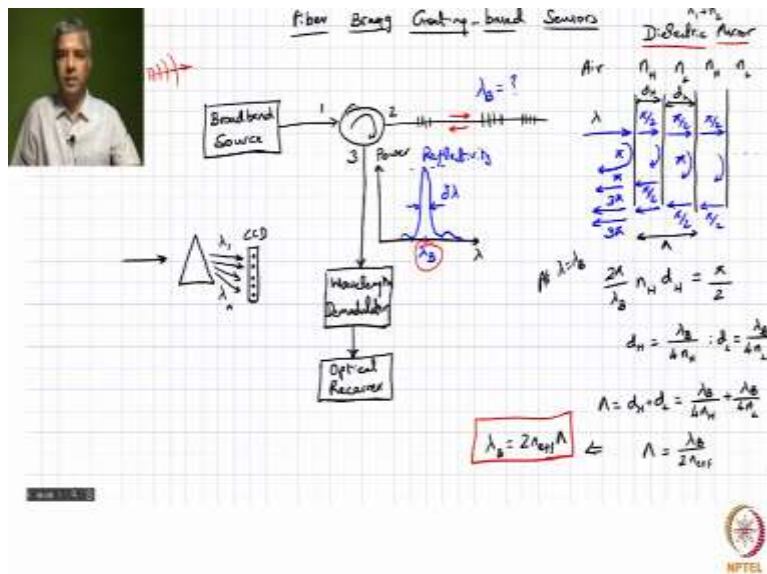 Fiber Bragg Grating-based Sensors
Dielectric Mirror
Air n_H n_L n_H n_L
d_H d_L
λ_B = ?
Broadband Source
1
2
3
λ
π/2 π/2 π/2
π π
π
3π
3π
π/2 π/2 π/2
Λ
Power
Reflectivity
δλ
λ_B
λ
CCD
λ_1
λ_n
Wavelength Demodulator
Optical Receiver
At λ=λ_B
2π/λ_B n_H d_H = π/2
d_H = λ_B/4n_H : d_L = λ_B/4n_L
Λ = d_H + d_L = λ_B/4n_H + λ_B/4n_L
λ_B = 2n_eff Λ ⇐ Λ = λ_B/2n_eff
NPTEL